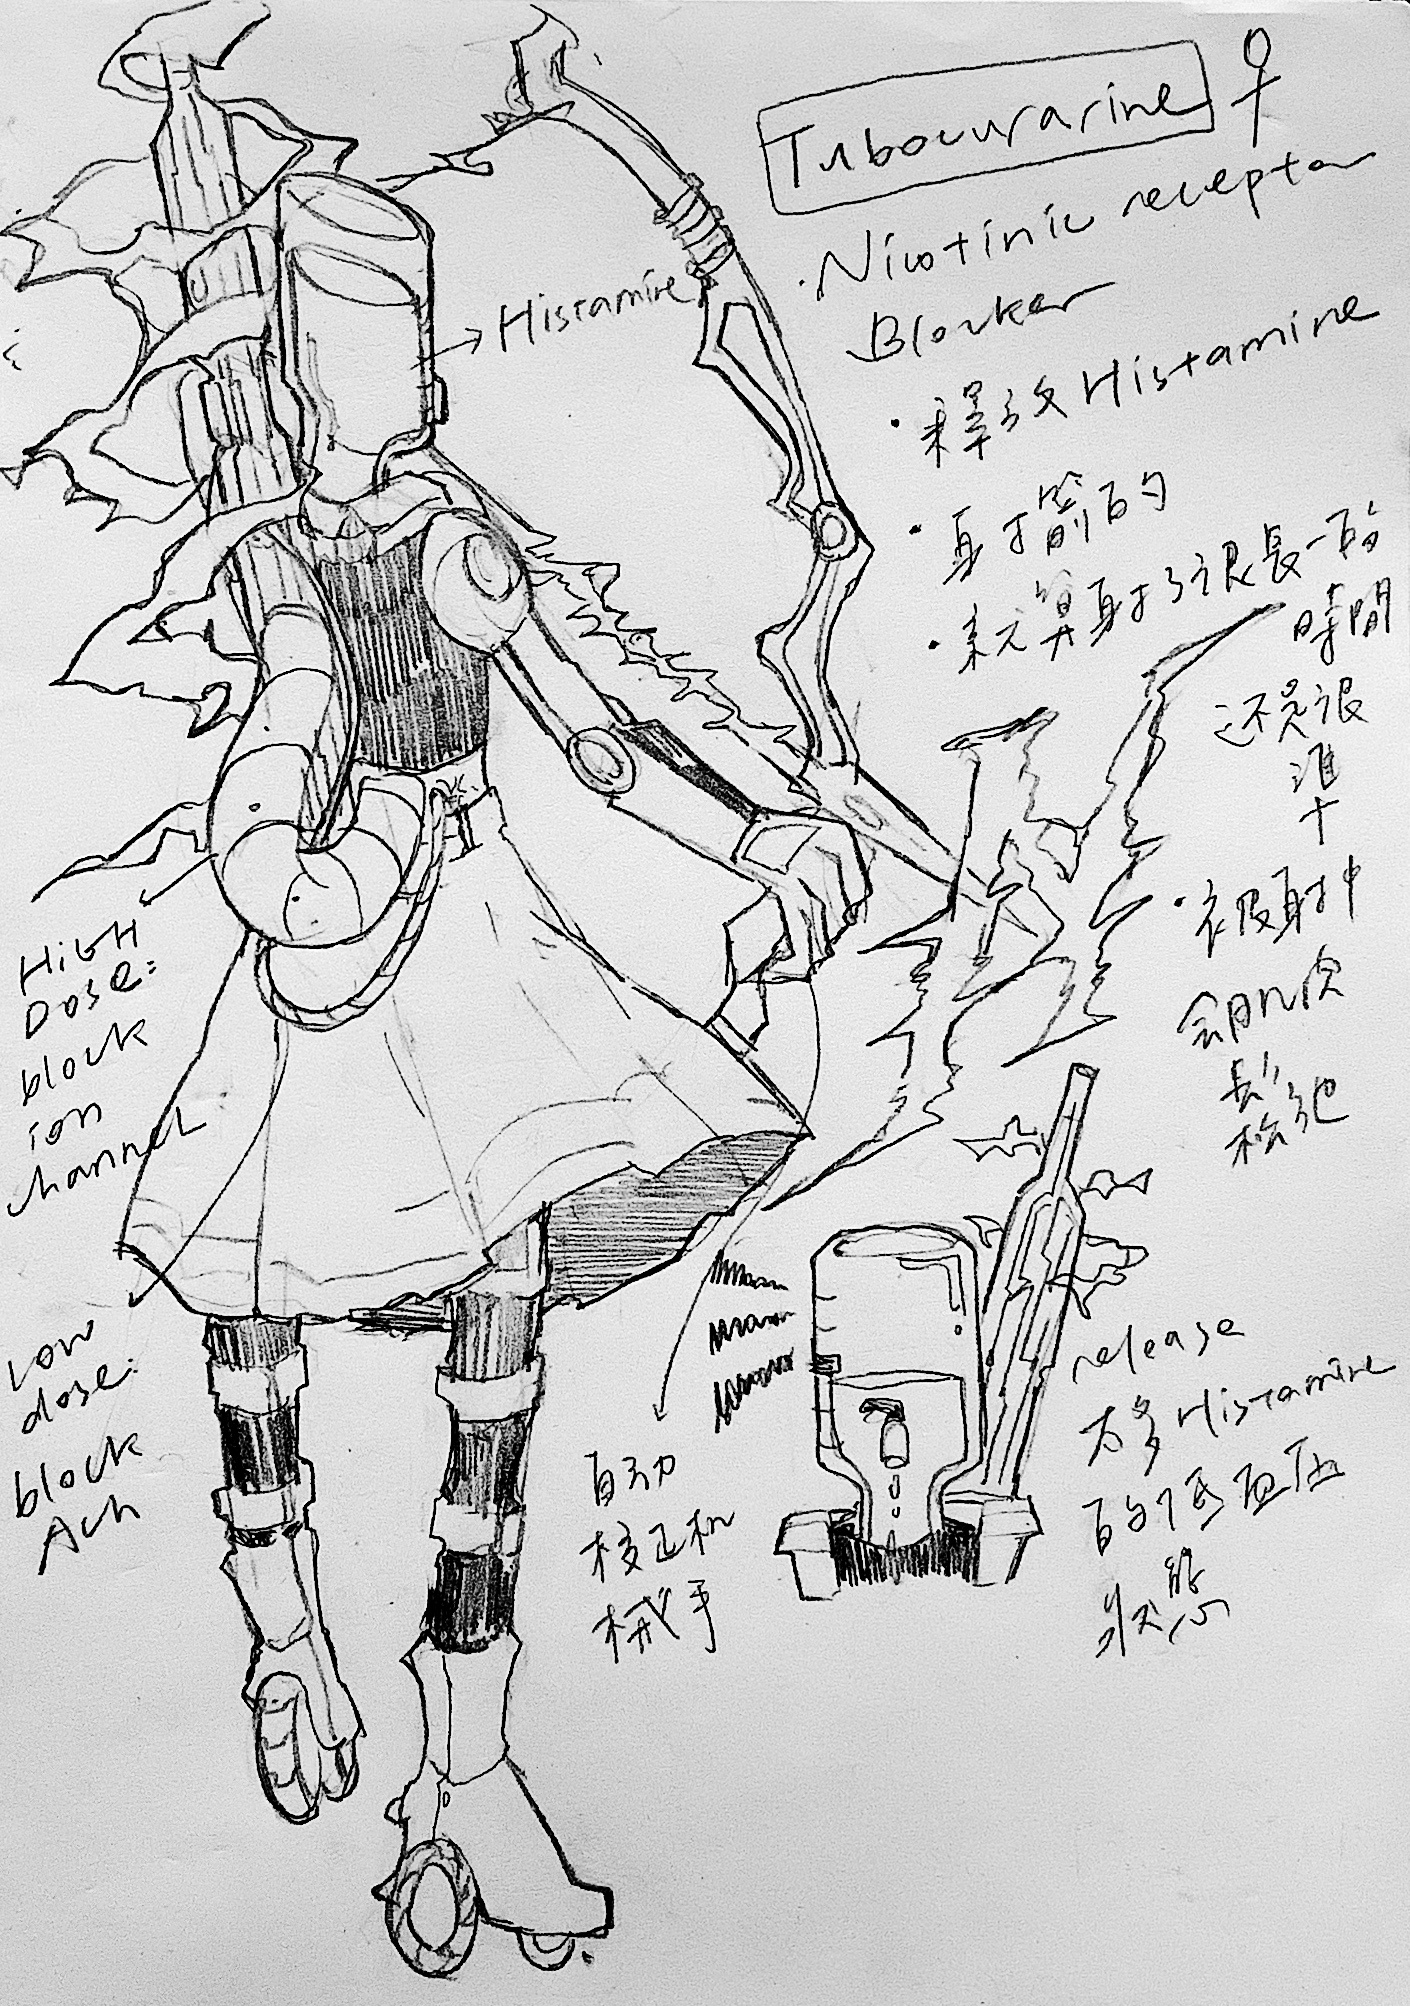 Tubocurarine ♀
· Nicotinic receptor
Blocker
→ Histamine
· 釋放 Histamine
· 射箭的
· 就算射了很長一的
時間
还是很
準
· 被射中
会肌肉
鬆弛
HigH
Dose:
block
ion
channel
Low
dose:
block
Ach
自动
校正机
械手
release
太多 Histamine
的低血压
状態